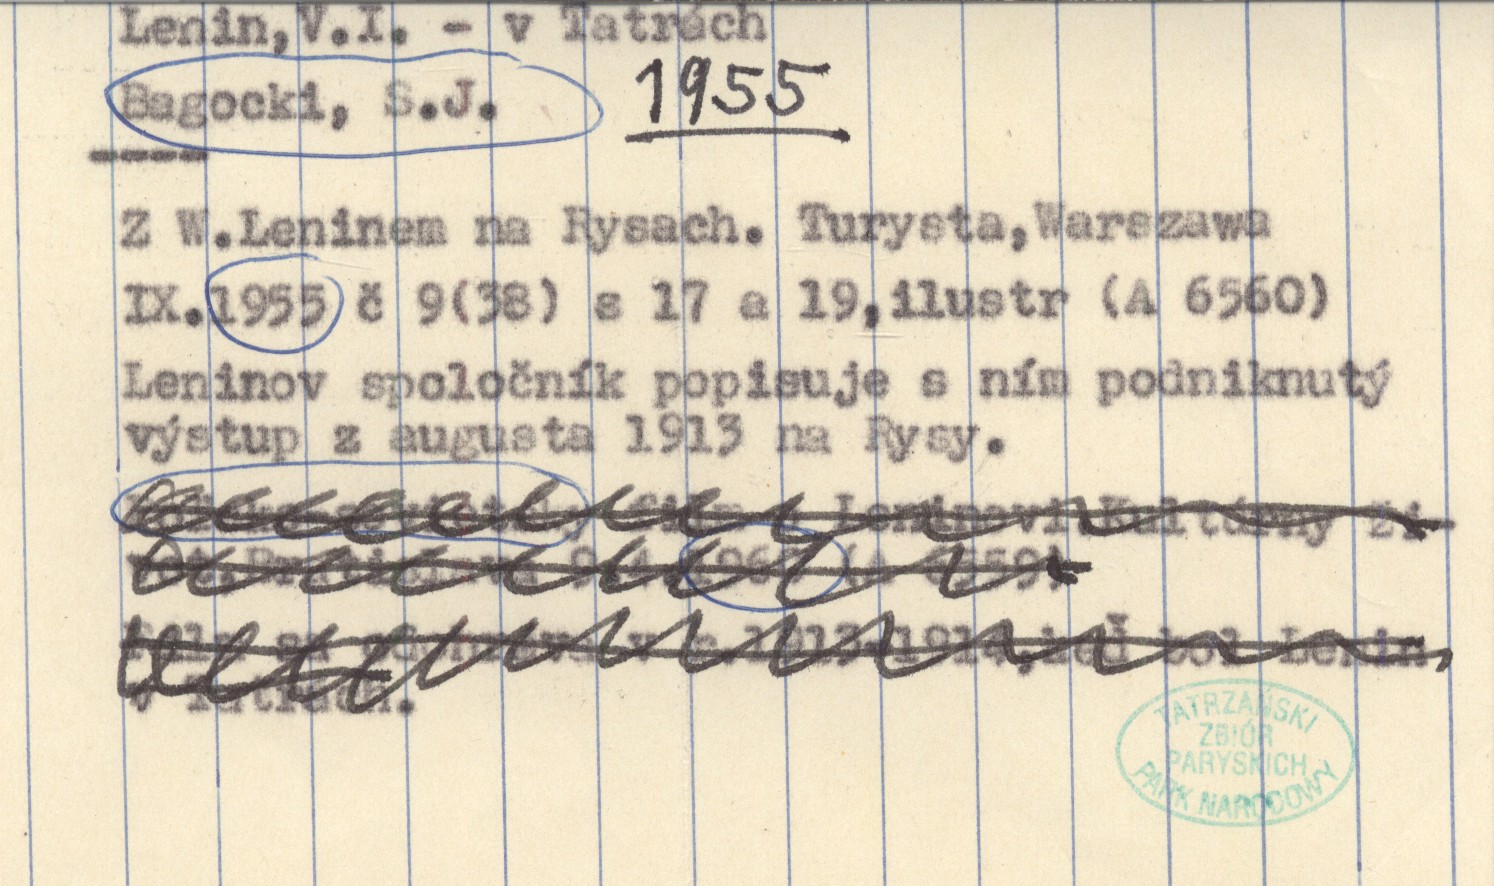 Lenin,V.I. - v Tatrách
Bagocki, S.J.
1955
----
Z W.Leninem na Rysach. Turysta,Warszawa
IX.1955 č 9(38) s 17 a 19,ilustr (A 6560)
Leninov spoločník popisuje s ním podniknutý
výstup z augusta 1913 na Rysy.
Leninovi Kultúrny ži-
v Tatrách.
TATRZAŃSKI
ZBIÓR
PARYSKICH
PARK NARODOWY